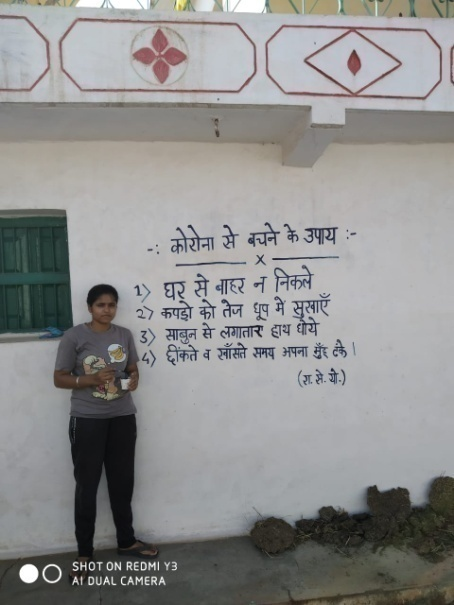 -: कोरोना से बचने के उपाय :-
x
1> घर से बाहर न निकले
2> कपड़ो को तेज धूप मे सुखाएँ
3> साबुन से लगातार हाथ धोये
4> छींकते व खाँसते समय अपना मुँह ढके।
(रा. से. यो.)
SHOT ON REDMI Y3
AI DUAL CAMERA